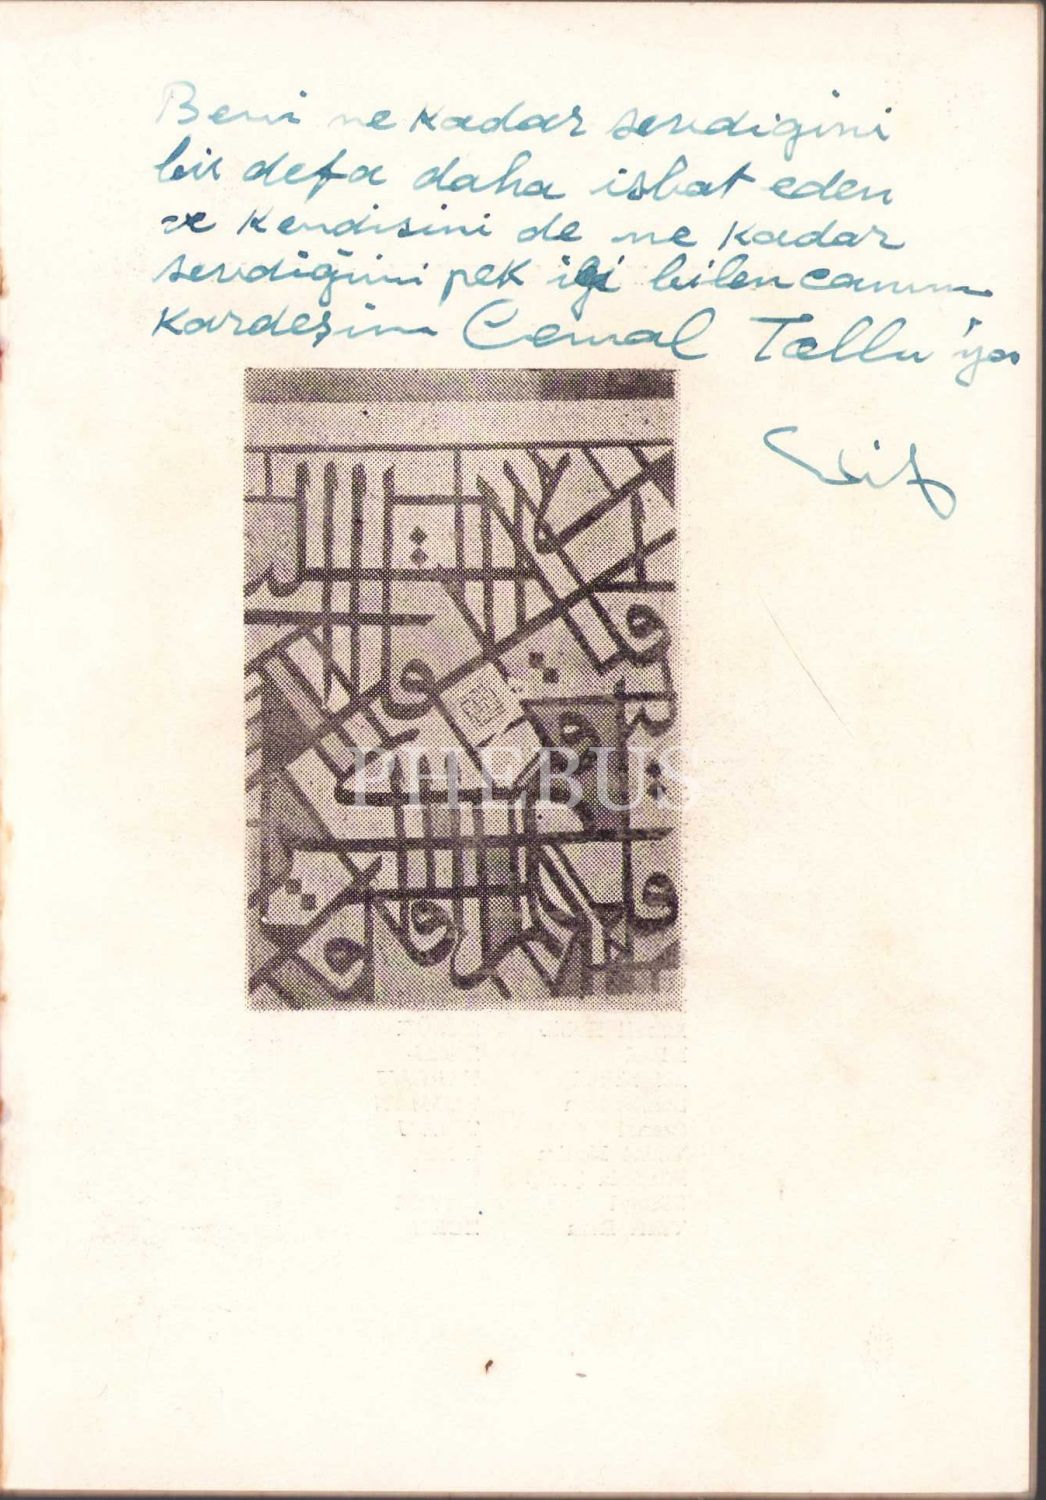 Beni ne kadar sevdiğini
bir defa daha isbat eden
ve kendisini de ne kadar
sevdiğimi pek iyi bilen canım
kardeşim Cemal Tollu'ya
PHEBUS